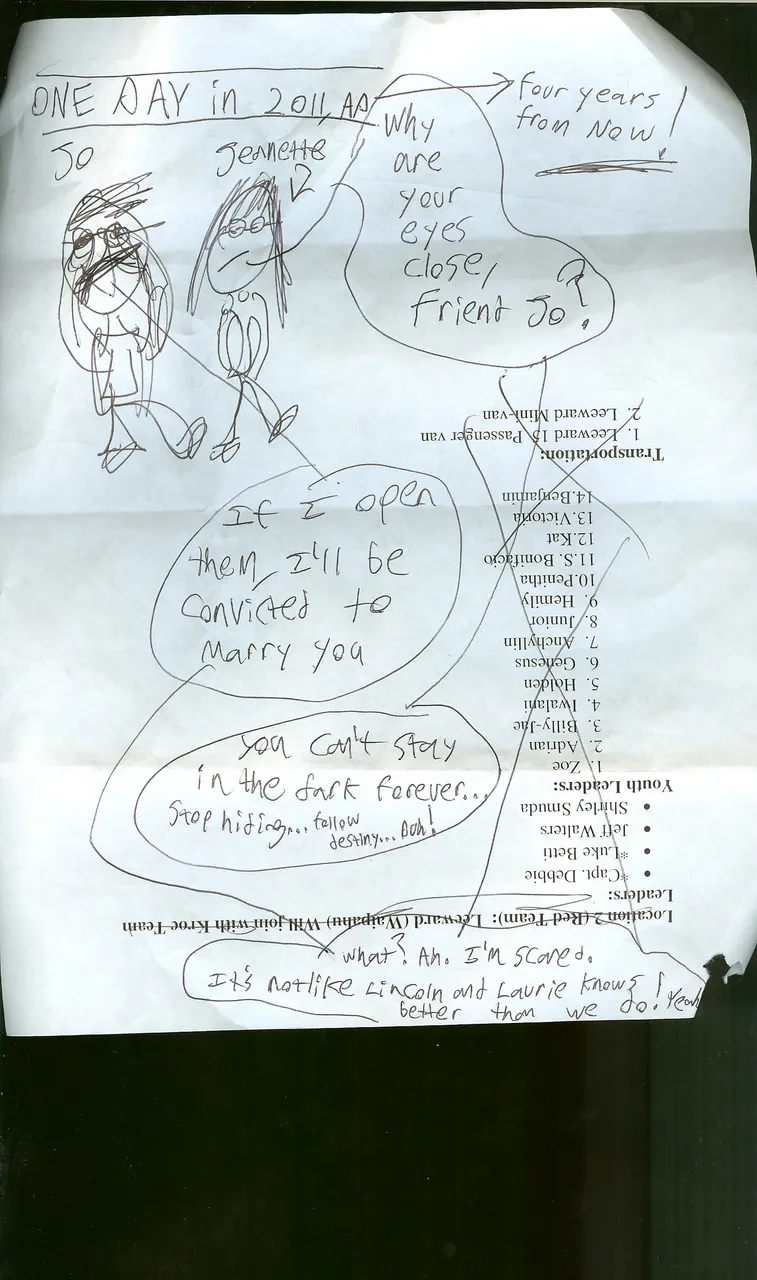 ONE DAY in 2011, AD
four years
from Now!
Jo
Jeannette
Why
are
your
eyes
close,
friend Jo?
If I open
them, I'll be
convicted to
marry you
you can't stay
in the dark forever...
Stop hiding... follow
destiny... Doh!
what? Ah. I'm scared.
It's not like Lincoln and Laurie knows
better than we do! Yeah
Location 2 (Red Team): Leeward (Waipahu) Will join with Kroc Team
Leaders:
• *Capt. Debbie
• *Luke Betti
• Jeff Walters
• Shirley Smuda
Youth Leaders:
1. Zoe
2. Adrian
3. Billy-Jae
4. Iwalani
5. Holden
6. Genesus
7. Anchyllin
8. Junior
9. Hemily
10. Penitha
11. S. Bonifacio
12. Kat
13. Victoria
14. Benjamin
Transportation:
1. Leeward 15 Passenger van
2. Leeward Mini-van